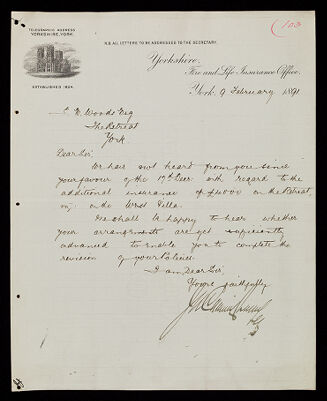 103
TELEGRAPHIC ADDRESS
YORKSHIRE, YORK.
N.B. ALL LETTERS TO BE ADDRESSED TO THE SECRETARY.
Yorkshire
Fire and Life Insurance Office,
ESTABLISHED 1824.
York, 9 February 1891
Woods Esq
The Retreat
York
Dear Sir,
We have not heard from you since
your favour of the 17th with regard to the
additional insurance of on the Retreat,
on the West Villa.
We shall be happy to hear whether
your arrangements are yet sufficiently
advanced to enable you to complete the
revision of your Policies.
I am Dear Sir,
Yours faithfully